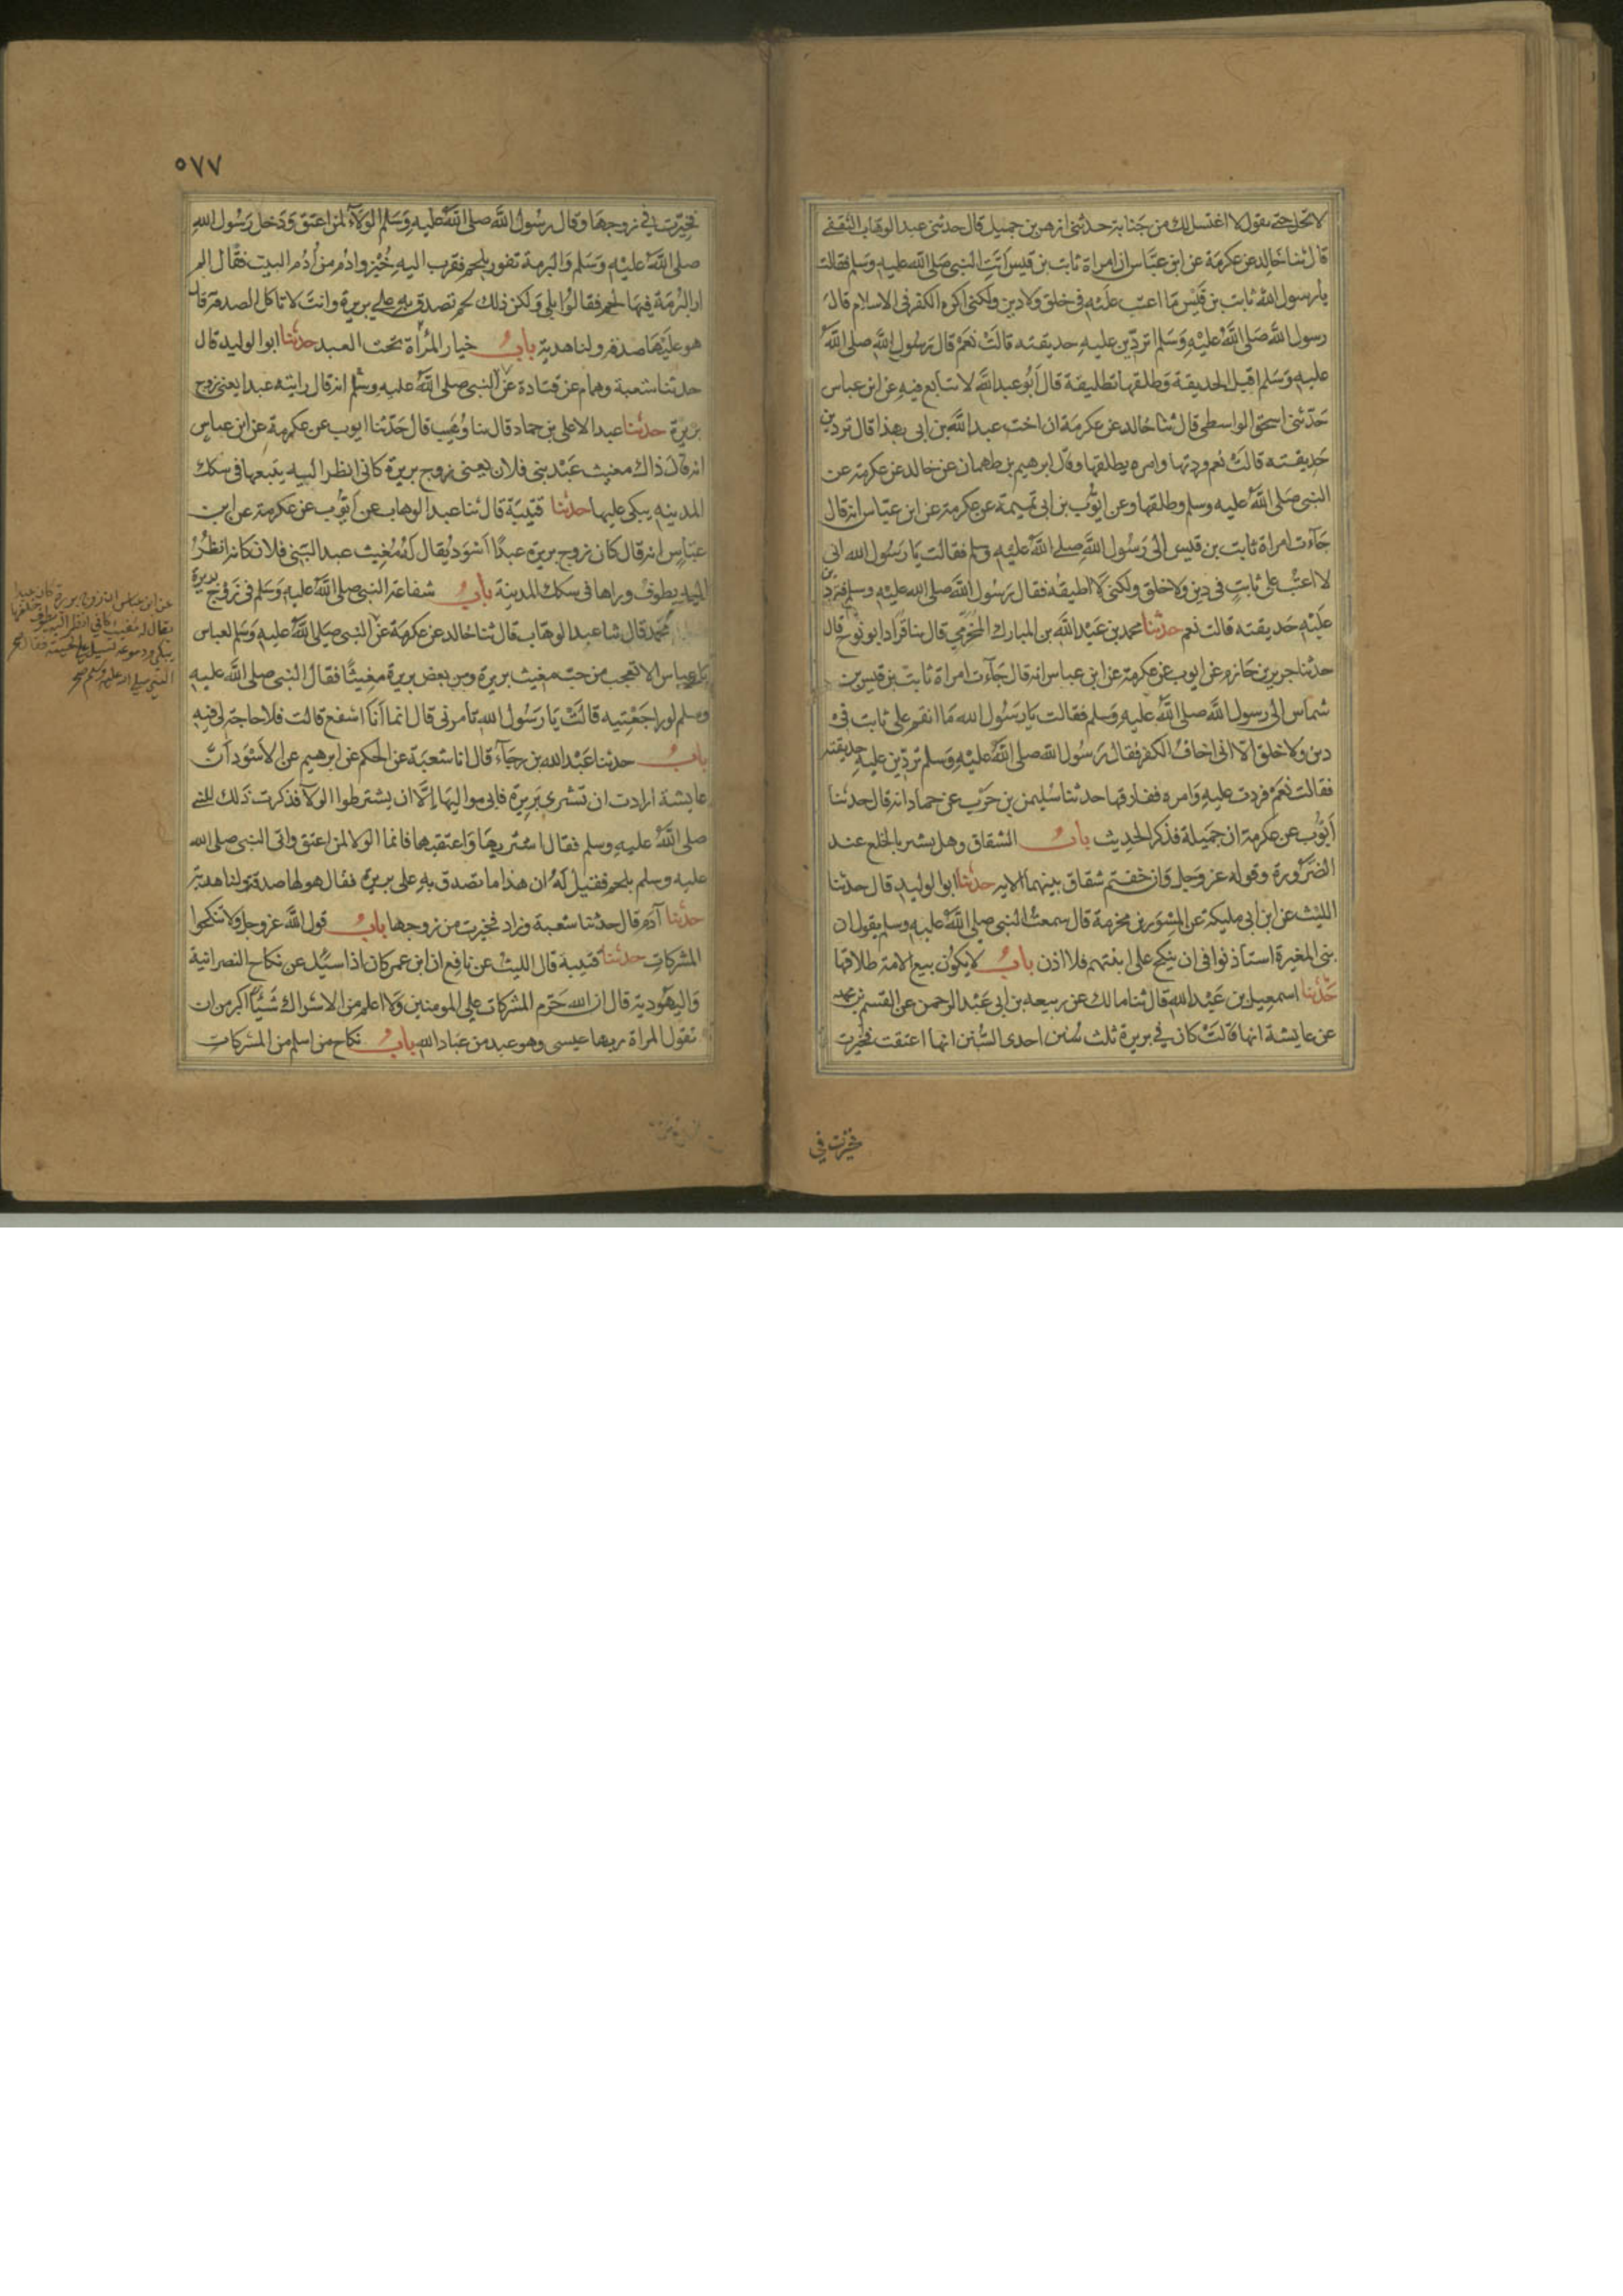 لا تحل حتى يقول لا اغتسل لك من جنابة حدثني ازهر بن جميل قال حدثني عبد الوهاب الثقفي
قال ثنا خالد عن عكرمة عن ابن عباس ان امراة ثابت بن قيس اتت النبي صلى الله عليه وسلم فقالت
يا رسول الله ثابت بن قيس ما اعتب عليه في خلق ولا دين ولكني اكره الكفر في الاسلام قال
رسول الله صلى الله عليه وسلم اتردين عليه حديقته قالت نعم قال رسول الله صلى الله
عليه وسلم اقبل الحديقة وطلقها تطليقة قال ابو عبد الله لا يتابع فيه عن ابن عباس
حدثني اسحق الواسطي قال ثنا خالد عن عكرمة ان اخت عبد الله بن ابى بهذا قال تردين
حديقته قالت نعم وردتها وامره يطلقها وقال ابرهيم بن طهمان عن خالد عن عكرمة عن
النبي صلى الله عليه وسلم وطلقها وعن ايوب بن ابي تميمة عن عكرمة عن ابن عباس انه قال
جاءت امراة ثابت بن قيس الى رسول الله صلى الله عليه وسلم فقالت يا رسول الله اني
لا اعتب على ثابت في دين ولا خلق ولكني لا اطيقه فقال رسول الله صلى الله عليه وسلم فتردين
عليه حديقته قالت نعم حدثنا محمد بن عبد الله بن المبارك المخرمي قال ثنا قراد ابو نوح قال
حدثنا جرير بن حازم عن ايوب عن عكرمة عن ابن عباس انه قال جاءت امراة ثابت بن قيس بن
شماس الى رسول الله صلى الله عليه وسلم فقالت يا رسول الله ما انقم على ثابت في
دين ولا خلق الا اني اخاف الكفر فقال رسول الله صلى الله عليه وسلم تردين عليه حديقته
فقالت نعم فردت عليه وامره ففارقها حدثنا سليمن بن حرب عن حماد انه قال حدثنا
ايوب عن عكرمة ان جميلة فذكر الحديث باب الشقاق وهل يشير بالخلع عند
الضرورة وقوله عز وجل وان خفتم شقاق بينهما الاية حدثنا ابو الوليد قال حدثنا
الليث عن ابن ابي مليكة عن المسور بن مخرمة قال سمعت النبي صلى الله عليه وسلم يقول ان
بني المغيرة استاذنوا في ان ينكح علي ابنتهم فلا اذن باب لا يكون بيع الامة طلاقها
حدثنا اسمعيل بن عبد الله قال ثنا مالك عن ربيعة بن ابي عبد الرحمن عن القسم بن محمد
عن عايشة انها قالت كان في بريرة ثلث سنن احدى السنن انها اعتقت فخيرت
فخيرت في
٥٧٧
فخيرت في زوجها وقال رسول الله صلى الله عليه وسلم الولاء لمن اعتق ودخل رسول الله
صلى الله عليه وسلم والبرمة تفور بلحم فقرب اليه خبز وادم من ادم البيت فقال الم
ار البرمة فيها لحم فقالوا بلى ولكن ذلك لحم تصدق به على بريرة وانت لا تاكل الصدقة قال
هو عليها صدقة ولنا هدية باب خيار المراة تحت العبد حدثنا ابو الوليد قال
حدثنا شعبة وهمام عن قتادة عن النبي صلى الله عليه وسلم انه قال رايته عبدا يعني زوج
بريرة حدثنا عبد الاعلى بن حماد قال ثنا وهيب قال حدثنا ايوب عن عكرمة عن ابن عباس
انه قال ذاك مغيث عبد بني فلان يعني زوج بريرة كاني انظر اليه يتبعها في سكك
المدينه يبكي عليها حدثنا قتيبة قال ثنا عبد الوهاب عن ايوب عن عكرمة عن ابن
عباس انه قال كان زوج بريرة عبدا اسود يقال له مغيث عبد البني فلان كاني انظر
اليه يطوف وراها في سكك المدينة باب شفاعة النبي صلى الله عليه وسلم في زوج بريرة
محمد قال ثنا عبد الوهاب قال ثنا خالد عن عكرمة عن النبي صلى الله عليه وسلم لعباس
يا عباس الا تعجب من حب مغيث بريرة ومن بعض بريرة مغيثا فقال النبي صلى الله عليه
وسلم لو راجعتيه قالت يا رسول الله تامرني قال انما انا اشفع قالت فلا حاجة لي فيه
باب حدثنا عبد الله بن رجاء قال انا شعبة عن الحكم عن ابرهيم عن الاسود ان
عايشة ارادت ان تشترى بريرة فابى مواليها الا ان يشترطوا الولا فذكرت ذلك للنبي
صلى الله عليه وسلم فقال اشتريها واعتقيها فانما الولا لمن اعتق واتى النبي صلى الله
عليه وسلم بلحم فقيل له ان هذا ما تصدق به على بريرة فقال هو لها صدقة ولنا هدية
حدثنا آدم قال حدثنا شعبة وزاد فخيرت من زوجها باب قول الله عز وجل ولا تنكحوا
المشركات حدثنا قتيبة قال الليث عن نافع ان ابن عمر كان اذا سئل عن نكاح النصرانية
واليهودية قال ان الله حرم المشركات على المومنين ولا اعلم من الاشراك شيئا اكبر من ان
تقول المراة ربها عيسى وهو عبد من عباد الله باب نكاح من اسلم من المشركات
عن ابن عباس ان زوج بريرة كان عبدا
يقال له مغيث كاني انظر اليه يطوف خلفها
يبكي ودموعه تسيل على لحيته فقال
النبي صلى الله عليه وسلم صح